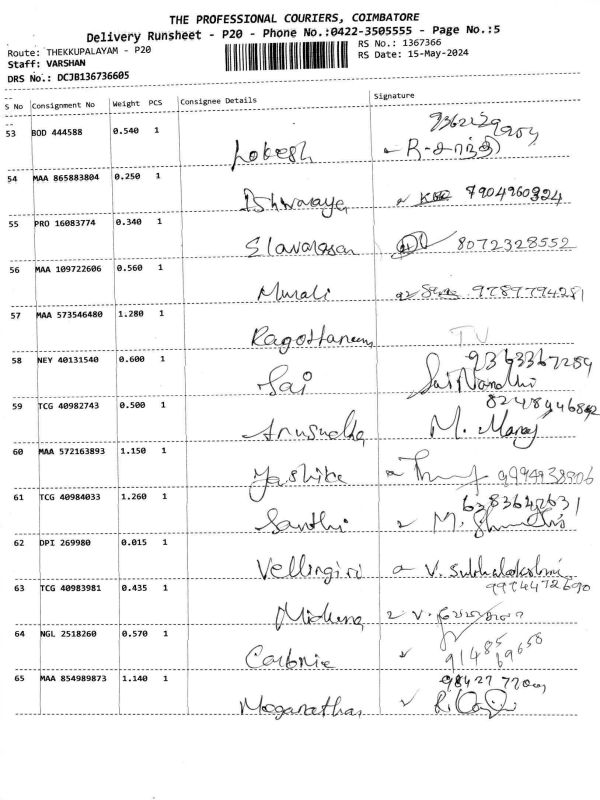 THE PROFESSIONAL COURIERS, COIMBATORE
Delivery Runsheet - P20 - Phone No.:0422-3505555 - Page No.:5
Route: THEKKUPALAYAM - P20
RS No.: 1367366
Staff: VARSHAN
RS Date: 15-May-2024
DRS No.: DCJB136736605
S No Consignment No Weight PCS Consignee Details Signature
53 BOD 444588 0.540 1 Lokesh
54 MAA 865883804 0.250 1 Ishwaraya 7904960324
55 PRO 16083774 0.340 1 Elavarasan 8072328552
56 MAA 109722606 0.560 1 Murali 9789794281
57 MAA 573546480 1.280 1 TV
58 NEY 40131540 0.600 1 Sai 9363367289
Sai Nandhu
59 TCG 40982743 0.500 1 M. Manoj
60 MAA 572163893 1.150 1 Yashika
61 TCG 40984033 1.260 1 Santhi 6383642631
62 DPI 269980 0.015 1 Vellingiri V. Subhalakshmi
63 TCG 40983981 0.435 1 9994472690
64 NGL 2518260 0.570 1
65 MAA 854989873 1.140 1